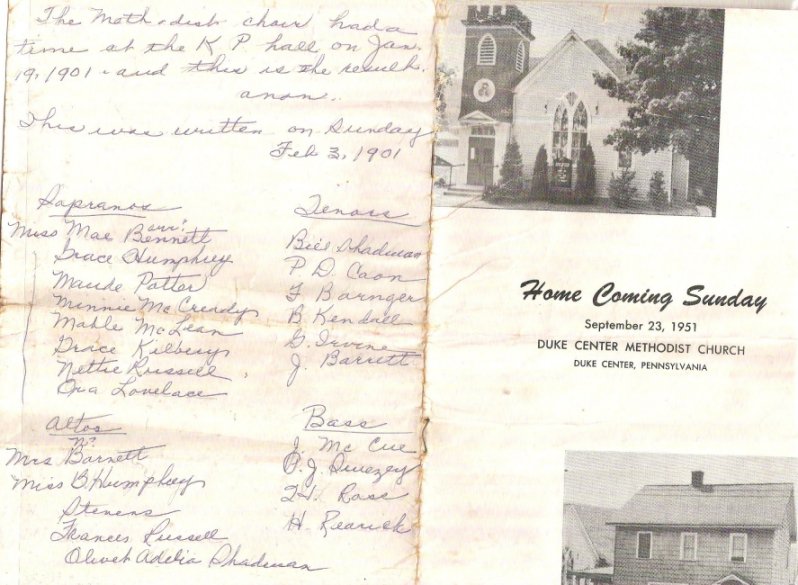 The Methodist choir had a
time at the K P. hall on Jan.
19, 1901 - and this is the result.
anon.
This was written on Sunday
Feb 3, 1901
Sopranos
Miss Mae Bennett
Grace Humphrey
Maude Potter
Minnie McCready
Mable McLean
Grace Kilbery
Nettie Russell
Ora Lovelace
Tenors
Bill Shadman
P. D. Caon
F Barnger
B. Kendall
G. Irvine
J. Barrett
Altos
Mrs Barnett
Miss B. Humphrey
Stevens
Frances Russell
Olivet Adelia Shadman
Bass
J. Mc Cue
Swezey
Rose
H. Rearick
Home Coming Sunday
September 23, 1951
DUKE CENTER METHODIST CHURCH
DUKE CENTER, PENNSYLVANIA